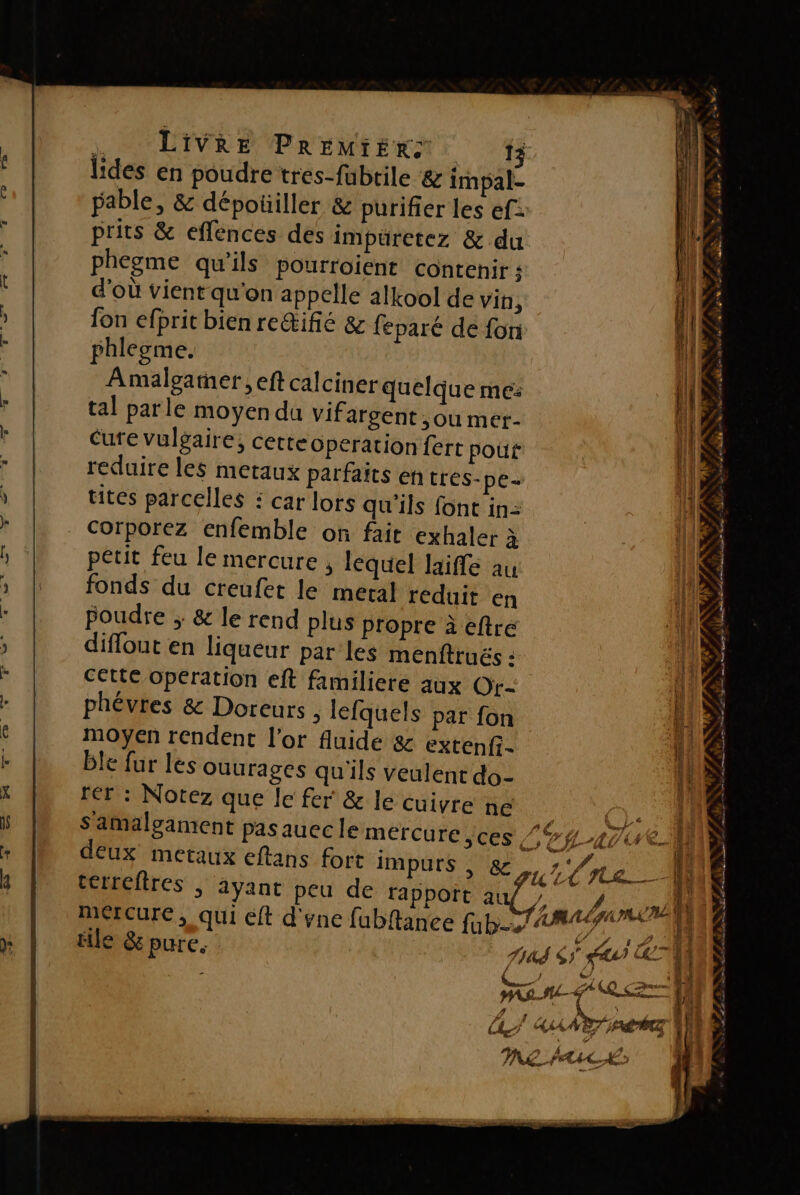 LIVRE PREMIER. 13
lides en poudre tres-ſubtile & impal-
pable, & dépoüiller & purifier les eſ-
prits & eſſences des impuretez & du
phegme qu'ils pourroient contenir ;
d'où vient qu'on appelle alkool de vin,
ſon eſprit bien rectifié & ſeparé de ſon
phlegme.
Amalgamer, eſt calciner quelque me-
tal par le moyen du vif argent, ou mer-
cure vulgaire, cette operation ſert pour
reduire les metaux parfaits en tres-pe-
tites parcelles : car lors qu'ils ſont in-
corporez enſemble on fait exhaler à
petit feu le mercure, lequel laiſſe au
fonds du creuſet le metal reduit en
poudre, & le rend plus propre à eſtre
diſſout en liqueur par les menſtruës :
cette operation eſt familiere aux Or-
phévres & Doreurs, leſquels par ſon
moyen rendent l'or fluide & extenſi-
ble ſur les ouurages qu'ils veulent do-
rer : Notez que le fer & le cuivre ne
s'amalgament pas auec le mercure, ces
deux metaux eſtans fort impurs, &
terreſtres, ayant peu de rapport au
mercure, qui eſt d'vne ſubſtance ſub-
tile & pure.
ne